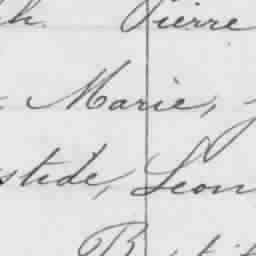 h. Pierre
Marie,
stide, Leon
B